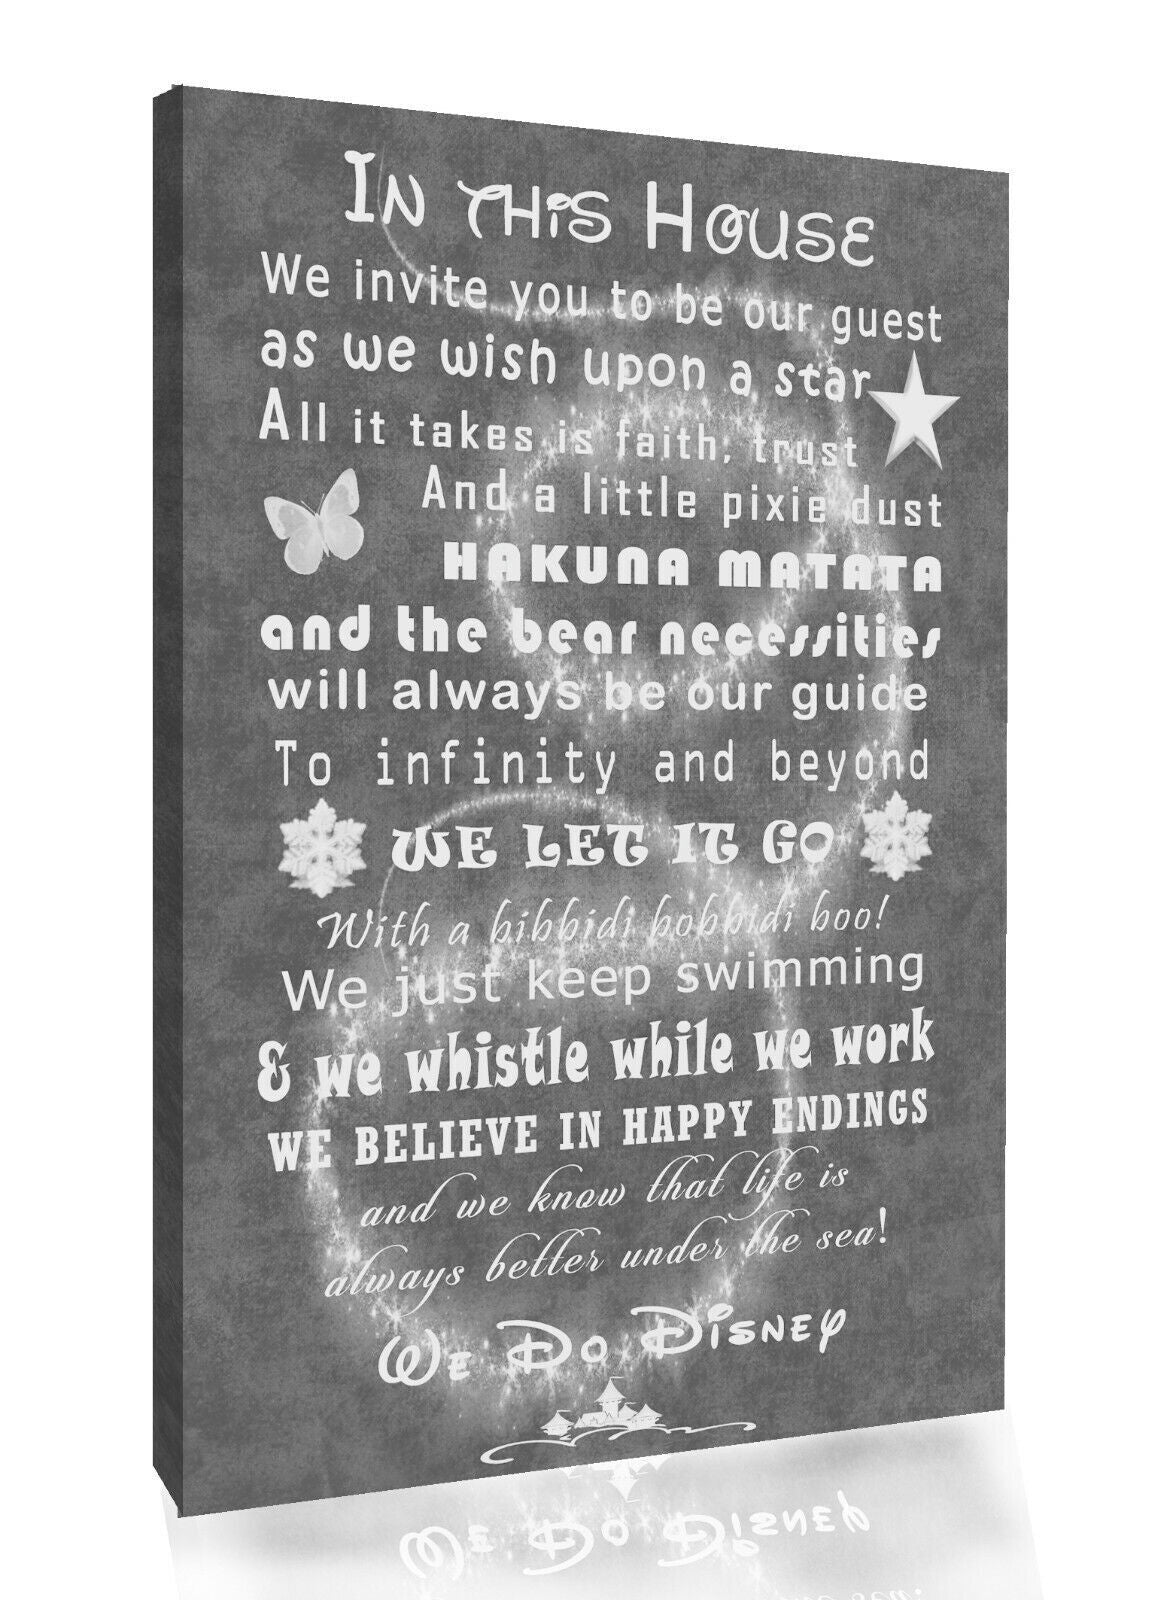 In this House
We invite you to be our guest
as we wish upon a star
All it takes is faith, trust
And a little pixie dust
HAKUNA MATATA
and the bear necessities
will always be our guide
To infinity and beyond
WE LET IT GO
With a bibbidi bobbidi boo!
We just keep swimming
& we whistle while we work
WE BELIEVE IN HAPPY ENDINGS
and we know that life is
always better under the sea!
We Do Disney